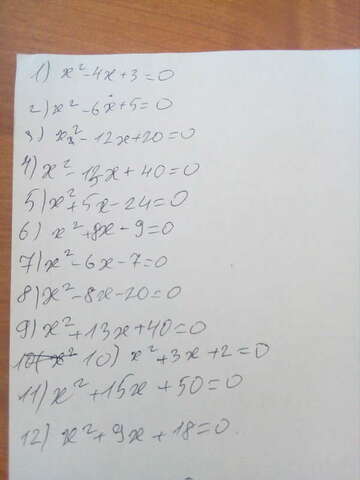 1) x²-4x+3=0
2) x²-6x+5=0
3) x²-12x+20=0
4) x²-13x+40=0
5) x²+5x-24=0
6) x²+8x-9=0
7) x²-6x-7=0
8) x²-8x-20=0
9) x²+13x+40=0
10) x²+3x+2=0
11) x²+15x+50=0
12) x²+9x+18=0